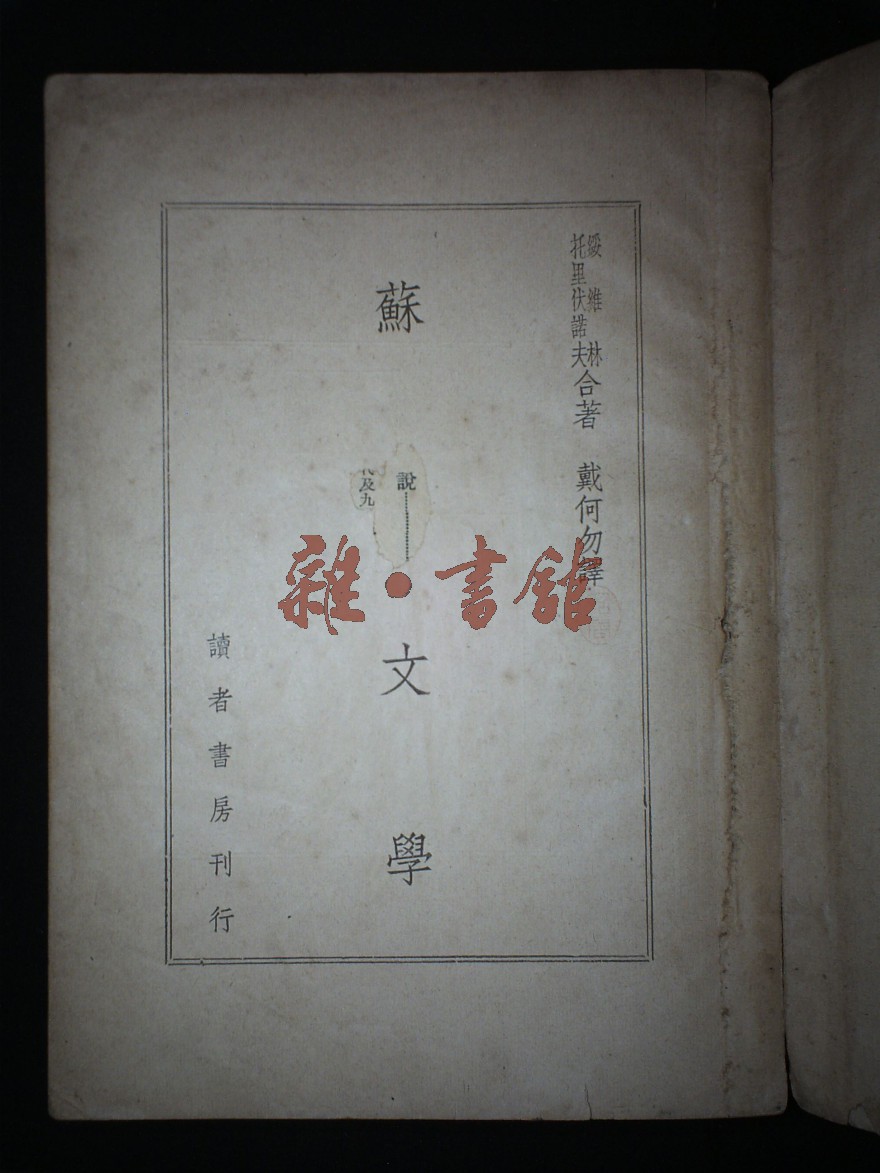 綏維林
托里伏諾夫
合著 戴何勿譯
蘇 文學
說
及九
讀者書房刊行
雜·書館